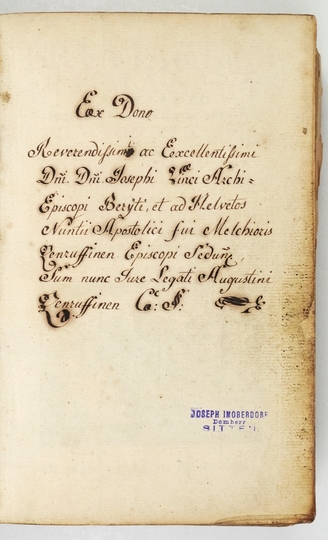 Ex Dono
Reverendissimi ac Excellentissimi
Dñi. Dñi Josephi Vinci Archi=
Episcopi Beryti, et ad Helvetos
Nuntii Apostolici fui Melchioris
Zenruffinen Episcopi Sedun̄,
Sum nunc Jure Legati Augustini
Zenruffinen C: S:
JOSEPH IMOBERDORF
Domherr
SITTEN